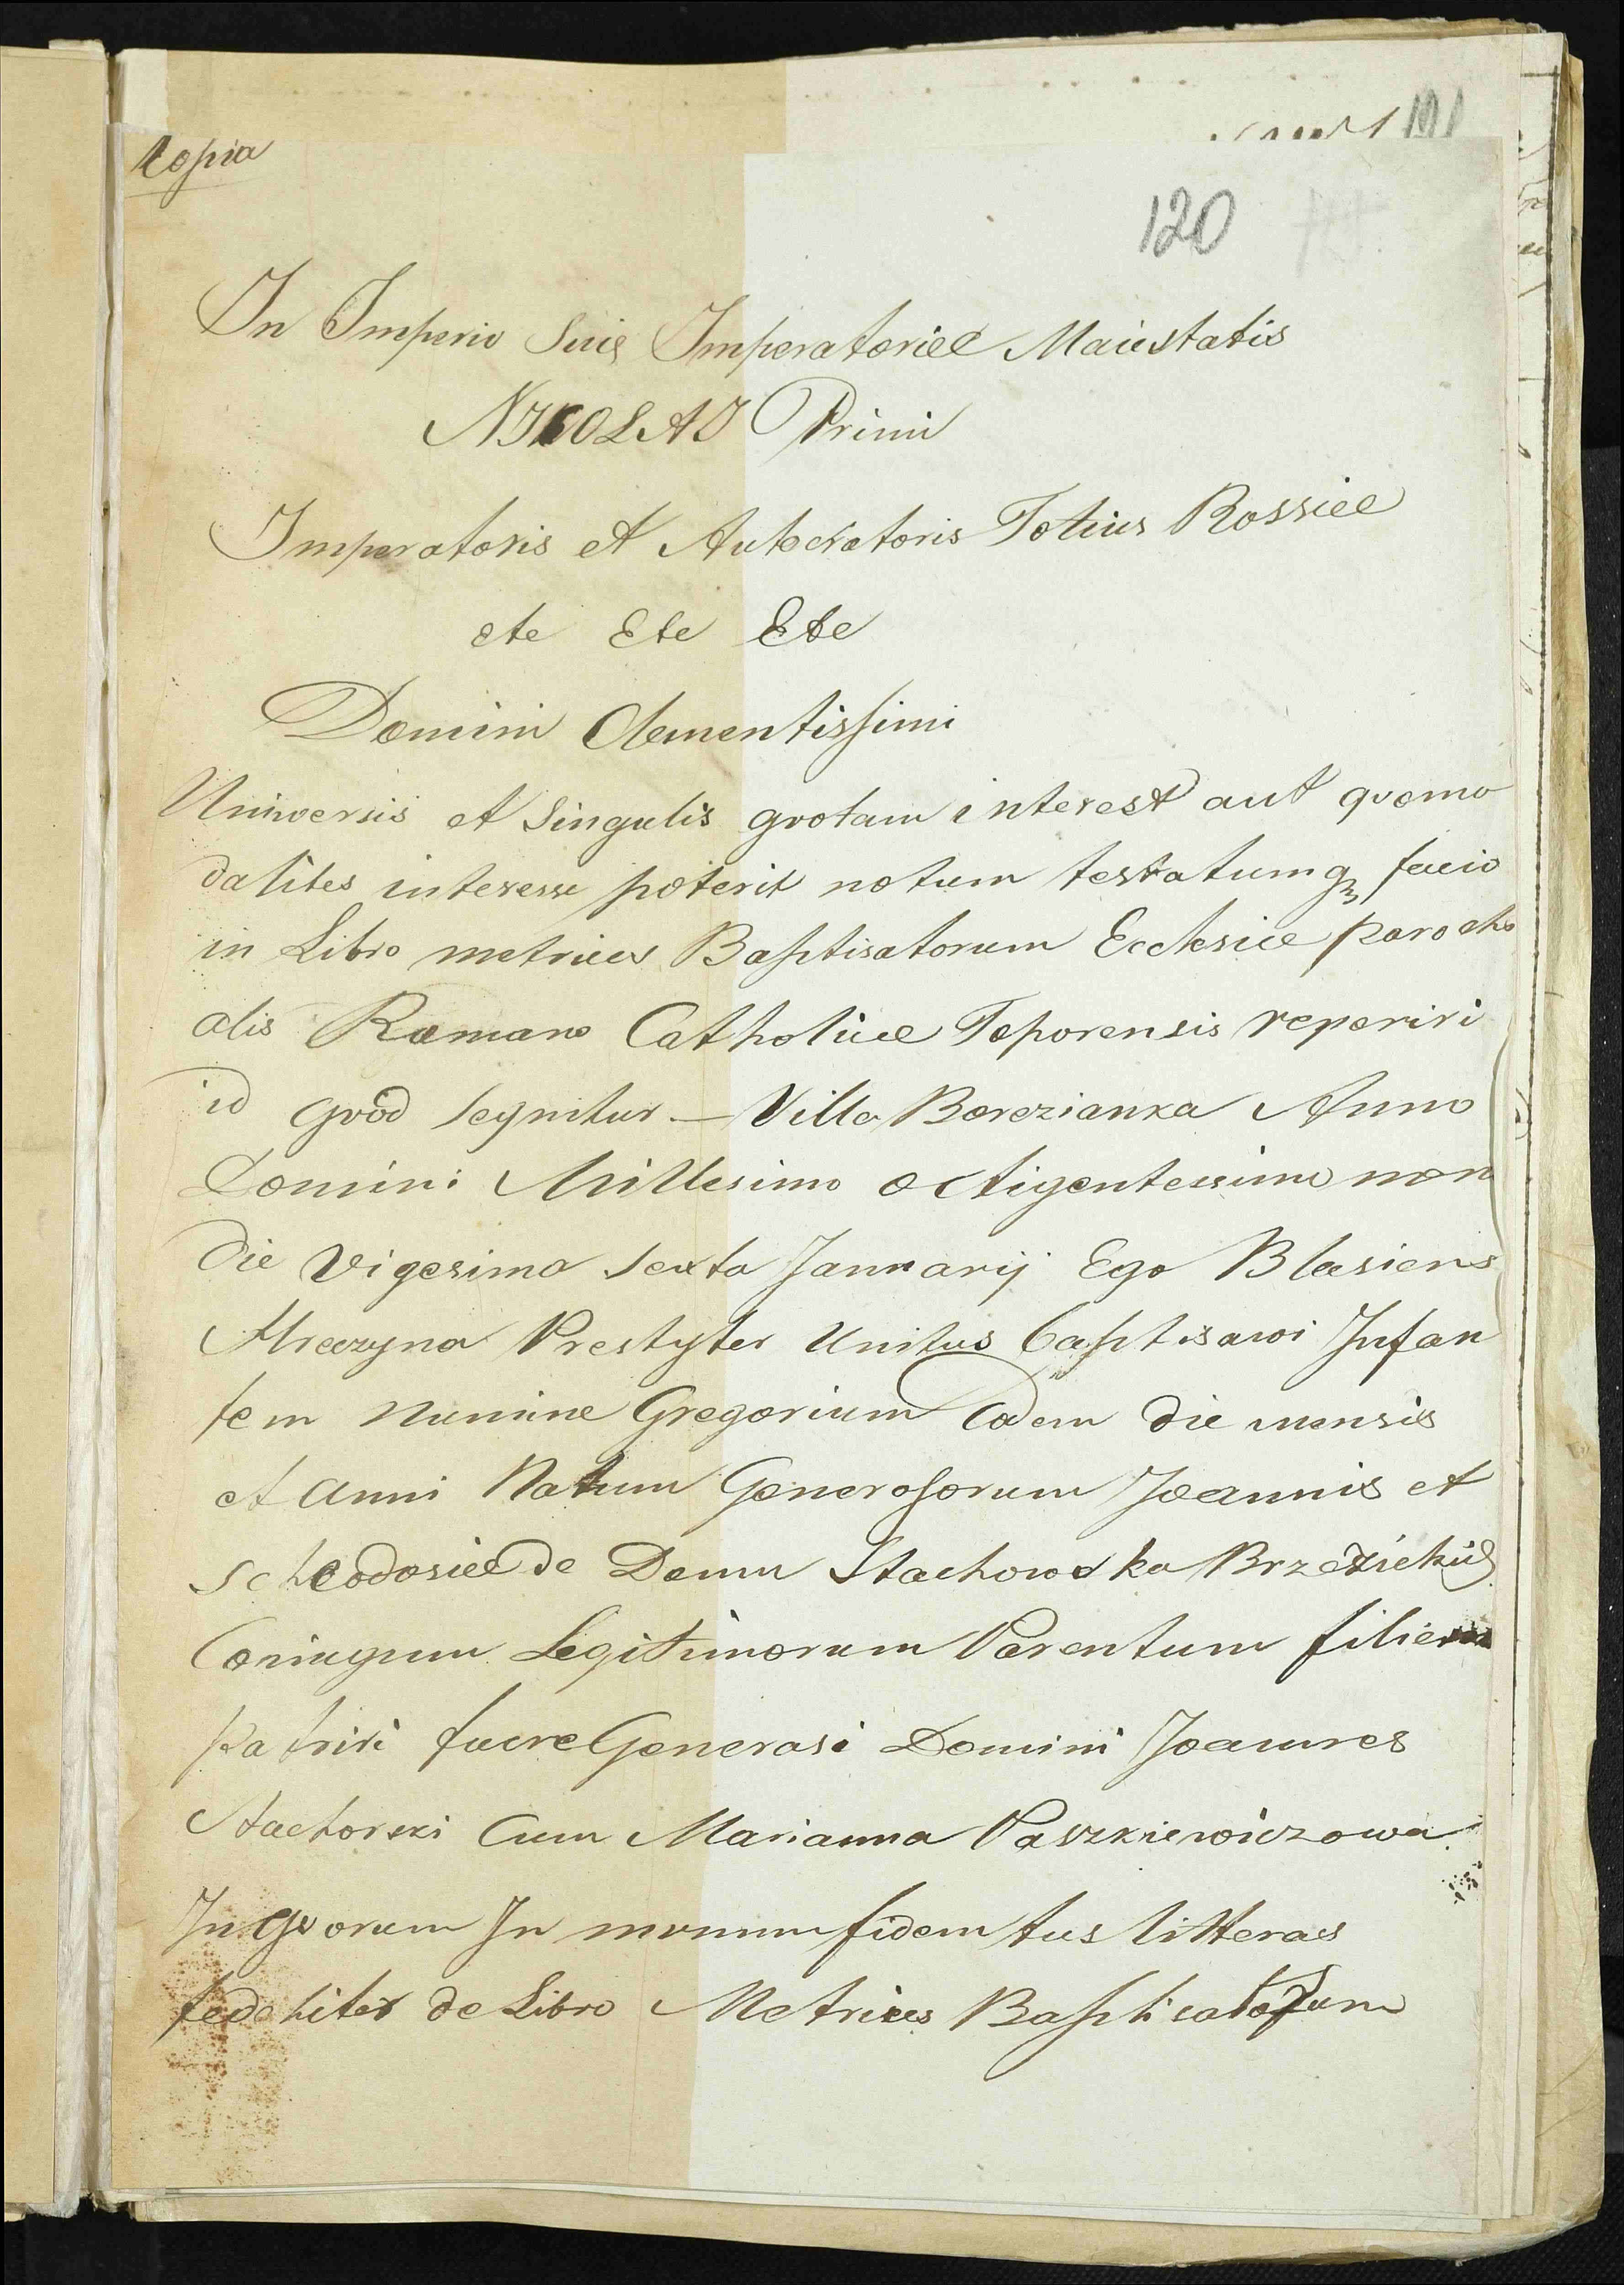 Copia
191
120
In Imperio Suie Imperatoriee Maiestatis
NIKOLAI Primi
Imperatoris et Autocratoris Totius Rossiee
etc Etc Etc
Domini Clementissimi
Universis et Singulis qvotam interest aut qvomo
dalites interesse poterit notum testatumq3 facio
in Libro metrices Baptisatorum Ecclesiee parochi
alis Romano Catholicee Toporensis reperiri
id qvod seqnitur — Villa Berezianka Anno
Domini Millesimo octigentessimo non
Die Vigesima Sexta Jannarij Ego Blasiens
Mreczyna Presbyter Unitus baptisawi Infan
tem Numine Gregorium Eodem die mensis
et anni Natum Generosorum Joannis et
Scheodosiee de Domu Stachowska Brzezickich
Coniugum Legitimorum Parentum filiem
patrini fuere Generosi Domini Joannes
Stachorski Cum Marianna Paszkiewiczowa
In Qvorum In mvnum fidem tus litteras
fedeliter de Libro Metrices Baptisatorum